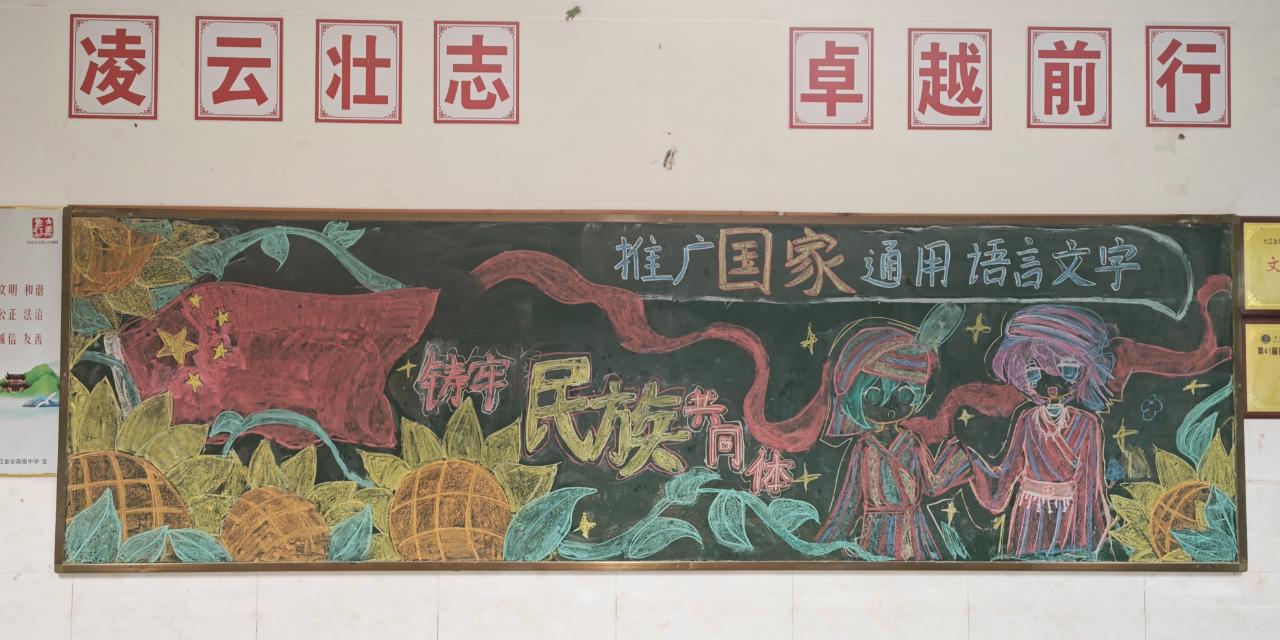 凌云壮志
卓越前行
推广国家通用语言文字
铸牢
民族
共同体
文明 和谐
公正 法治
诚信 友善
九江金安高级中学 宣
第41届